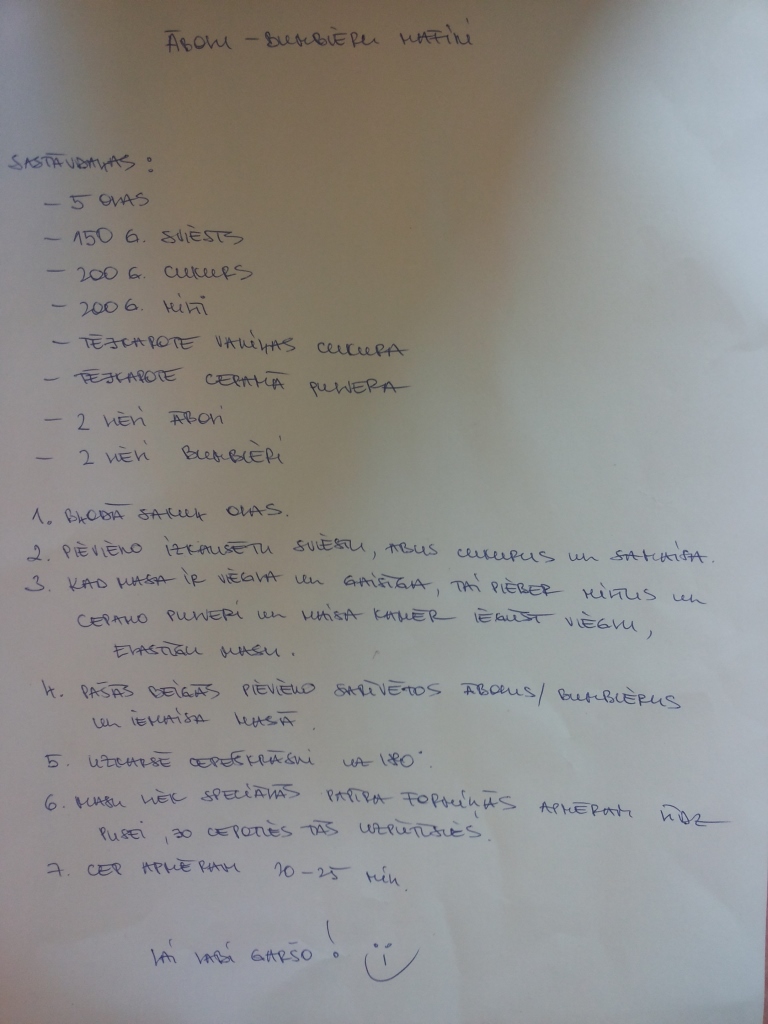 ĀBOLU - BUMBIERU MAFINI
SASTĀVDAĻAS:
- 5 OLAS
- 150 G. SVIESTS
- 200 G. CUKURS
- 200 G. MILTI
- TĒJKAROTE VANIĻAS CUKURA
- TĒJKAROTE CEPAMĀ PULVERA
- 2 LIELI ĀBOLI
- 2 LIELI BUMBIERI
1. BĻODĀ SAKUĻ OLAS.
2. PIEVIENO IZKAUSĒTU SVIESTU, ABUS CUKURUS UN SAMAISA.
3. KAD MASA IR VIEGLA UN GAISĪGA, TAI PIEBER MILTUS UN
CEPAMO PULVERI UN MAISA KAMĒR IEGŪST VIEGLU,
ELASTĪGU MASU.
4. PAŠĀS BEIGĀS PIEVIENO SARĪVĒTOS ĀBOLUS/BUMBIERUS
UN IEMAISA MASĀ.
5. UZKARSĒ CEPEŠKRĀSNI UZ 180°.
6. MASU LIEK SPECIĀLĀS PAPĪRA FORMIŅĀS APMĒRAM LĪDZ
PUSEI, JO CEPOTIES TĀS UZPŪTĪSIES.
7. CEP APMĒRAM 20-25 MIN.
LAI LABI GARŠO!